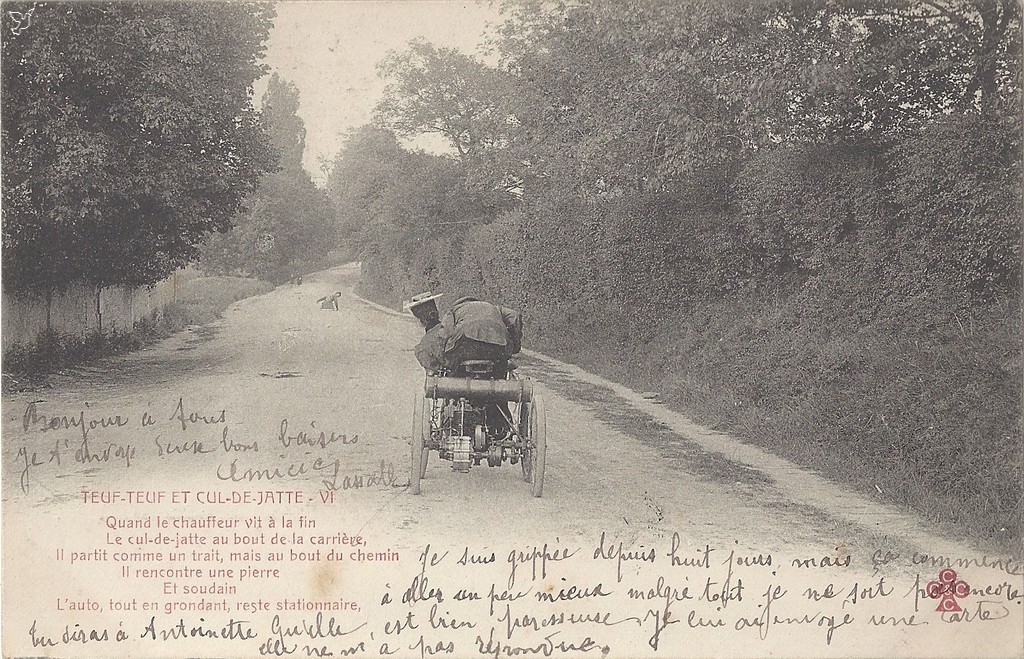 Bonjour à tous
Je t'envoye deux bons baisers
Amicie
TEUF-TEUF ET CUL-DE-JATTE - VI
Quand le chauffeur vit à la fin
Le cul-de-jatte au bout de la carrière,
Il partit comme un trait, mais au bout du chemin
Il rencontre une pierre
Et soudain
L'auto, tout en grondant, reste stationnaire,
Je suis grippée depuis huit jours, mais ça commence
à aller un peu mieux malgré tout je ne sort pas encore.
Tu diras à Antoinette Qu'elle est bien paresseuse. Je lui ai envoyé une carte
elle ne m'a pas répondue.
CCCC